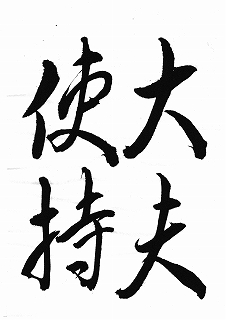 大夫
使持